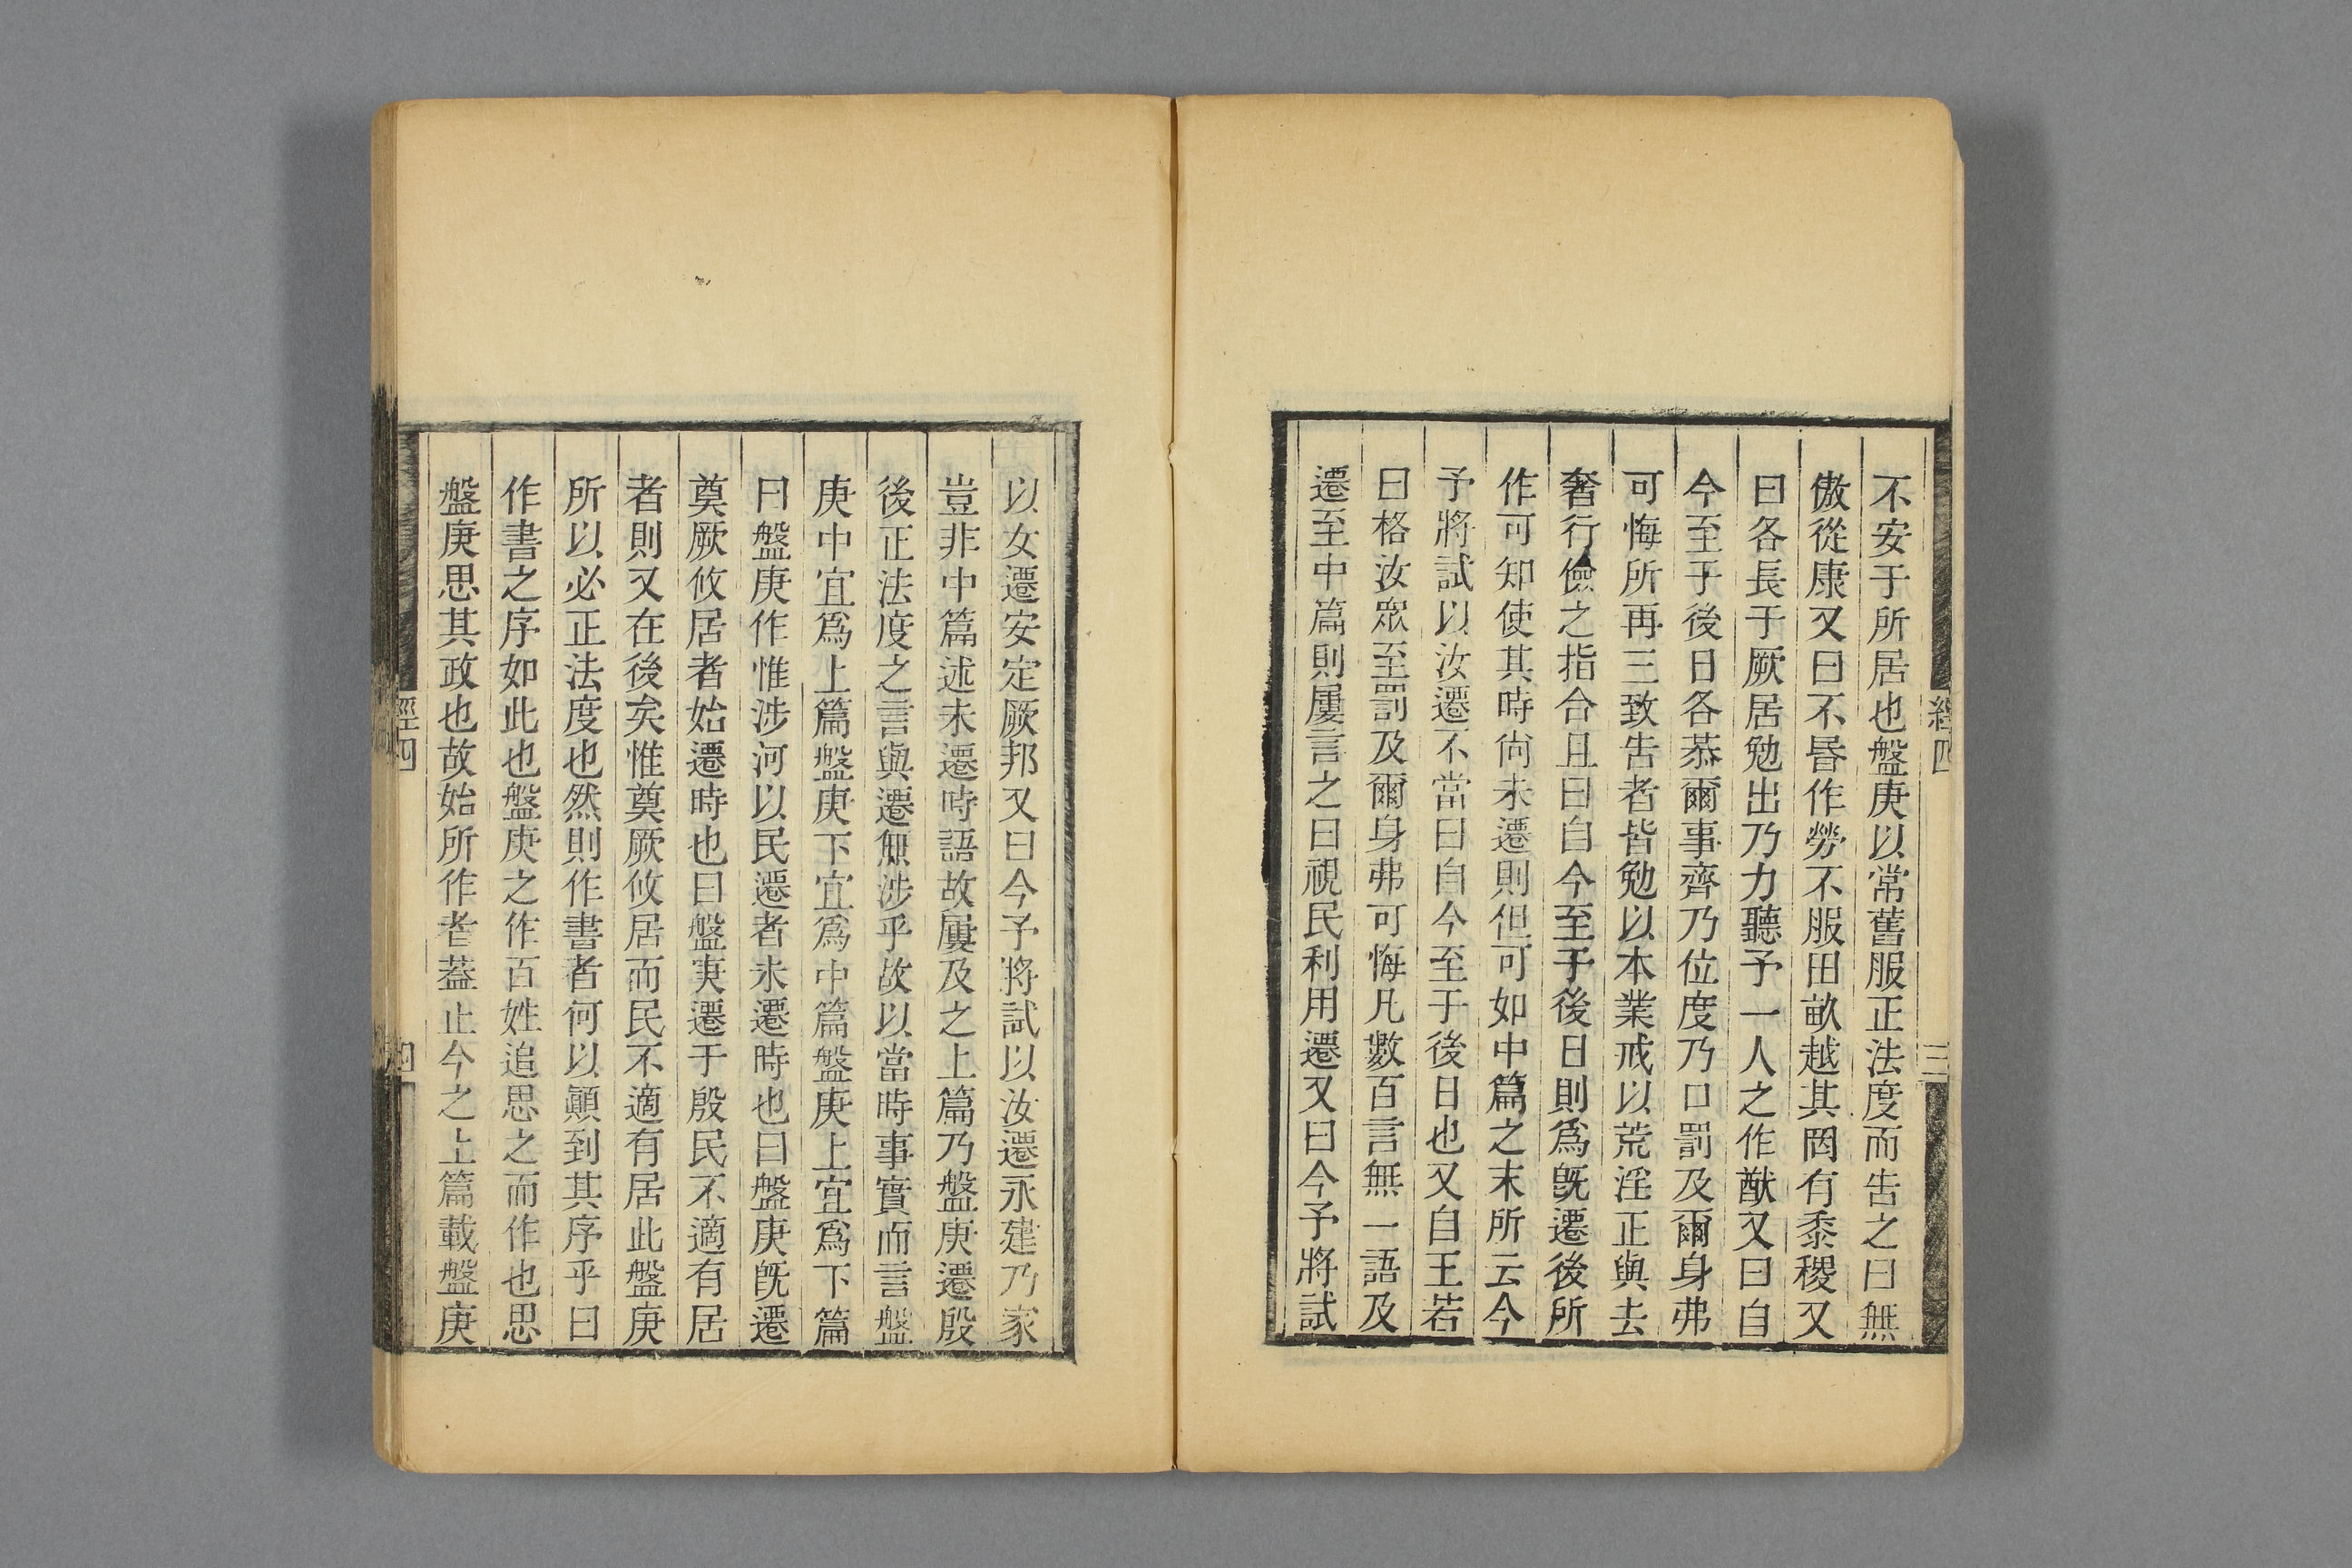 不安于所居也盤庚以常舊服正法度而告之曰無
傲從康又曰不昬作勞不服田畝越其罔有黍稷又
曰各長于厥居勉出乃力聽予一人之作猷又曰自
今至于後日各恭爾事齊乃位度乃口罰及爾身弗
可悔所再三致告者皆勉以本業戒以荒淫正與去
奢行儉之指合且曰自今至于後日則爲旣遷後所
作可知使其時尚未遷則但可如中篇之末所云今
予將試以汝遷不當曰自今至于後日也又自王若
曰格汝眾至罰及爾身弗可悔凡數百言無一語及
遷至中篇則屢言之曰視民利用遷又曰今予將試
經四
三
以女遷安定厥邦又曰今予將試以汝遷永建乃家
豈非中篇述未遷時語故屢及之上篇乃盤庚遷殷
後正法度之言與遷無涉乎故以當時事實而言盤
庚中宜爲上篇盤庚下宜爲中篇盤庚上宜爲下篇
曰盤庚作惟涉河以民遷者未遷時也曰盤庚旣遷
奠厥攸居者始遷時也曰盤庚遷于殷民不適有居
者則又在後矣惟奠厥攸居而民不適有居此盤庚
所以必正法度也然則作書者何以顚到其序乎曰
作書之序如此也盤庚之作百姓追思之而作也思
盤庚思其政也故始所作者葢止今之上篇載盤庚
經四
四